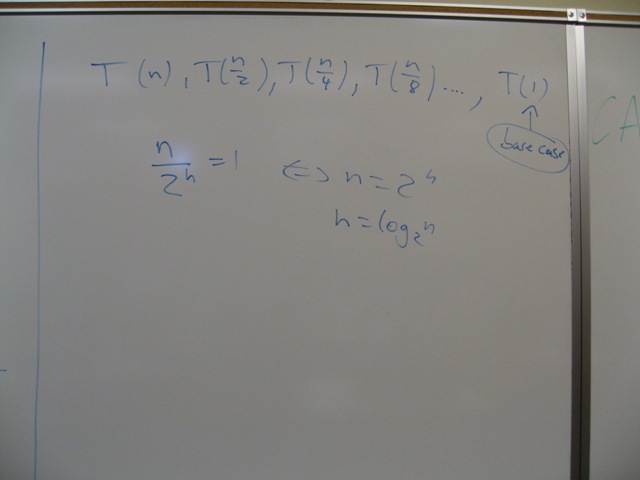 T(n), T(n/2), T(n/4), T(n/8) ...., T(1)
base case
n/2^h = 1 <=> n = 2^h
h = log_2 n
CA